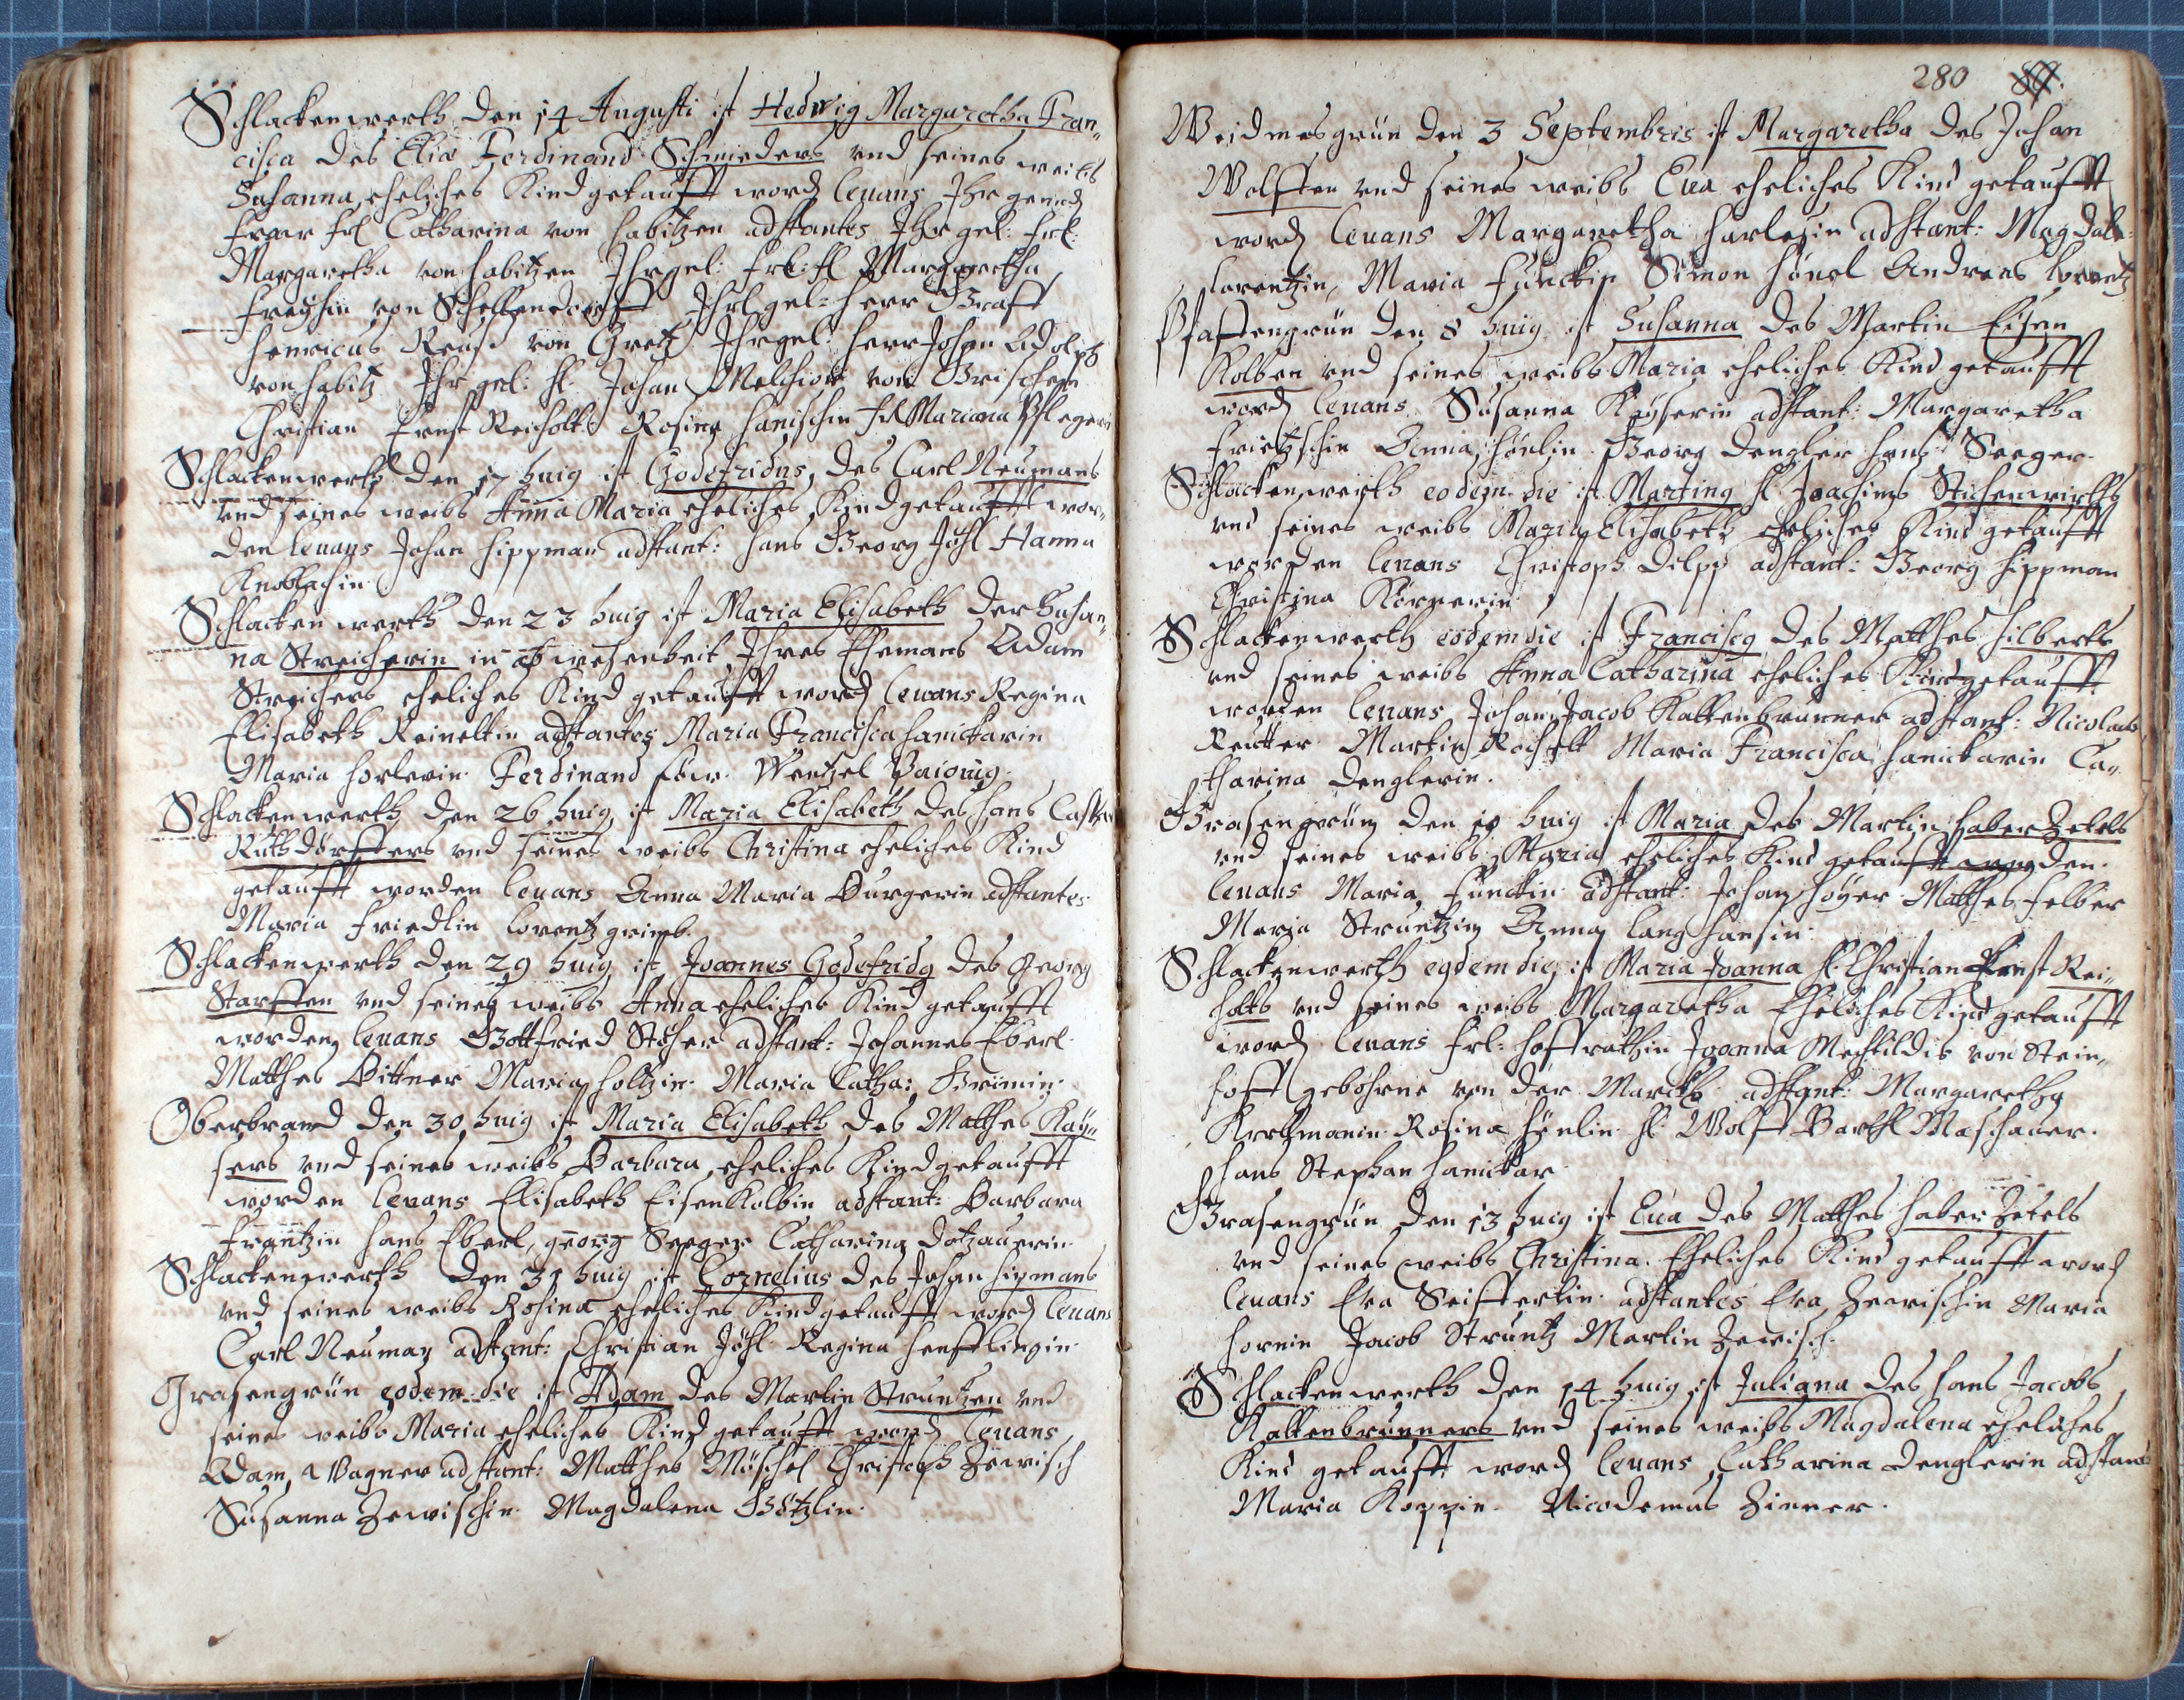 Schlackenwerth den 14 Augusti ist Hedwig Margaretha Fran„
cisca des Eliæ Ferdinand Schmieders vnd seines weibs
Susanna, eheliches Kind getaufft word levans Ihr
Fraw Frl Catharina von habitzen adstantes Ihr gel: Frl:
Margaretha von habitzen Ihr gel: Margaretha
von Schellendorff Ihr gel: herr Graff
henricus Reuß von Ihr gel: herr Johan Adolph
von habitz Ihr gel: h. Johan Melchior von
Christian Ernst Reicholt Rosina hanischin Mariana Pflegerin
Schlackenwerth den 17 huig ist Godefridus, des Carl Neumans
vnd seines weibs Anna Maria eheliches Kind getaufft wor„
den levans Johan hippman adstant: hans Georg Jöhl Hanna
Knoblachin
Schlackenwerth den 23 huig ist Maria Elisabeth der Susan„
na Streicherin in abwesenheit Ihres Ehemans Adam
Streichers eheliches Kind getaufft word levans Regina
Elisabeth Reineltin adstantes Maria Francisca hanickarin
Maria horlerin Ferdinand Wentzel
Schlackenwerth den 26 huig ist Maria Elisabeth des hans
vnd seines weibs Christina eheliches Kind
getaufft worden levans Anna Maria Burgerin adstantes
Maria Friedlin Lorentz
Schlackenwerth den 29 huig ist Joannes Godefridg des Georg
vnd seines weibs Anna eheliches Kind getaufft
worden levans Gottfried Stöhrer adstant: Johannes Eberl
Matthes Bittner Maria holtzin Maria Catha:
Oberbrand den 30 huig ist Maria Elisabeth des Matthes Kay„
sers vnd seines weibs Barbara, eheliches Kind getaufft
worden levans Elisabeth EisenKolbin adstant: Barbara
Frantzin hans Eberl, georg Seeger Catharina Dotzauerin
Schlackenwerth den 31 huig ist Cornelius des Johan hipmans
vnd seines weibs Rosina eheliches Kind getaufft word levans
Carl Neuman adstant: Christian Jöhl Regina
Grasengrün eodem die ist Adam des Martin Struntzen vnd
seines weibs Maria eheliches Kind getaufft word levans
Adam Wagner adstant: Matthes Möschel Christoph Zewisch
Susanna Zewischin Magdalena Götzlin
280
Weidmesgrün den 3 Septembris ist Margaretha des Johan
Wolfften vnd seines weibs Eva eheliches Kind getaufft
word levans Margaretha harlesin adstant: Magdale„
Lorentzin, Maria Funckin Simon hönel Andreas Lorentz
Pfaffengrün den 8 huig ist Susanna des Martin Eisen
Kolben vnd seines weibs Maria eheliches Kind getaufft
word levans Susanna Kayserin adstant: Margaretha
Frietzschin Anna hönlin Georg Dengler hans Seeger
Schlackenwerth eodem die ist Marting h Joachims
vnd seines weibs Maria Elisabeth eheliches Kind getaufft
worden levans Christoph Dilpp adstant: Georg hippman
Christina Körnerin
Schlackenwerth eodem die ist Franciscg des Matthes hilberts
vnd seines weibs Anna Catharina eheliches Kind getaufft
worden levans Johan Jacob Kaltenbrunner adstant: Nicolaus
Reutter Martin Rochelt Maria Francisca hanickarin Ca„
tharina Denglerin.
Grasengrün den 10 huig ist Maria des Martin haberZetels
vnd seines weibs Maria eheliches Kind getaufft worden
levans Maria Funckin adstant: Johan höyer Matthes Felber
Maria Struntzin Anna lang hansin
Schlackenwerth eodem die ist Maria Joanna h. Christian Ernst Rei„
holts vnd seines weibs Margaretha Eheliches Kind getaufft
word levans Frl: hoffrathin Joanna Mechtildis von Stein„
hoff gebohrne von der Marckh adstant: Margaretha
Rosina hönlin h. Wolff Barthl Maschauer.
hans Stephan hanickar
Grasengrün den 13 huig ist Eva des Matthes haber Zetels
vnd seines weibs Christina. Eheliches Kind getaufft word
levans Eva Seifferlin adstantes Eva Zewischin Maria
hornin Jacob Struntz Martin Zewisch.
Schlackenwerth den 14 huig ist Juliana des hans Jacobs
Kaltenbrunners vnd seines weibs Magdalena eheliches
Kind getaufft word levans Catharina Denglerin adstant
Maria Koppin. Nicodemus Ziener.